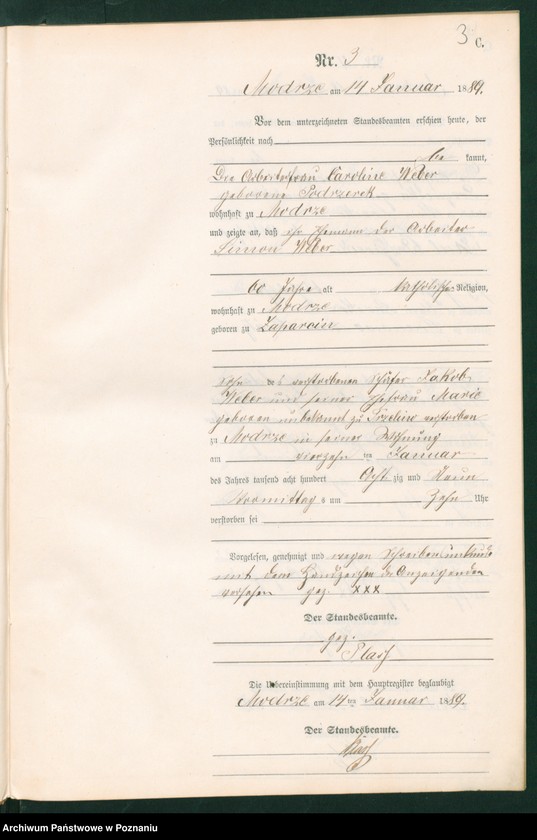 3 C.
Nr. 3
Modrze am 14 Januar 1889.
Vor dem unterzeichneten Standesbeamten erschien heute, der
Persönlichkeit nach
be kannt,
Die Arbeiterfrau Caroline Weber
geborene
wohnhaft zu Modrze
und zeigte an, daß ihr Ehemann der Arbeiter
Simon Weber
60 Jahre alt katholischer Religion,
wohnhaft zu Modrze
geboren zu Zaparcin
Sohn des verstorbenen Schäfer Jakob
Weber und seiner Ehefrau Marie
geboren unbekannt zu verstorben
zu Modrze in seiner Wohnung
am vierzehn ten Januar
des Jahres tausend acht hundert Acht zig und Neun
Vormittag s um Zehn Uhr
verstorben sei
Vorgelesen, genehmigt und wegen Schreibensunkunde
mit dem Handzeichen der Anzeigenden
versehen gez. xxx
Der Standesbeamte.
gez.
Die Uebereinstimmung mit dem Hauptregister beglaubigt
Modrze am 14 ten Januar 1889.
Der Standesbeamte.
Archiwum Państwowe w Poznaniu